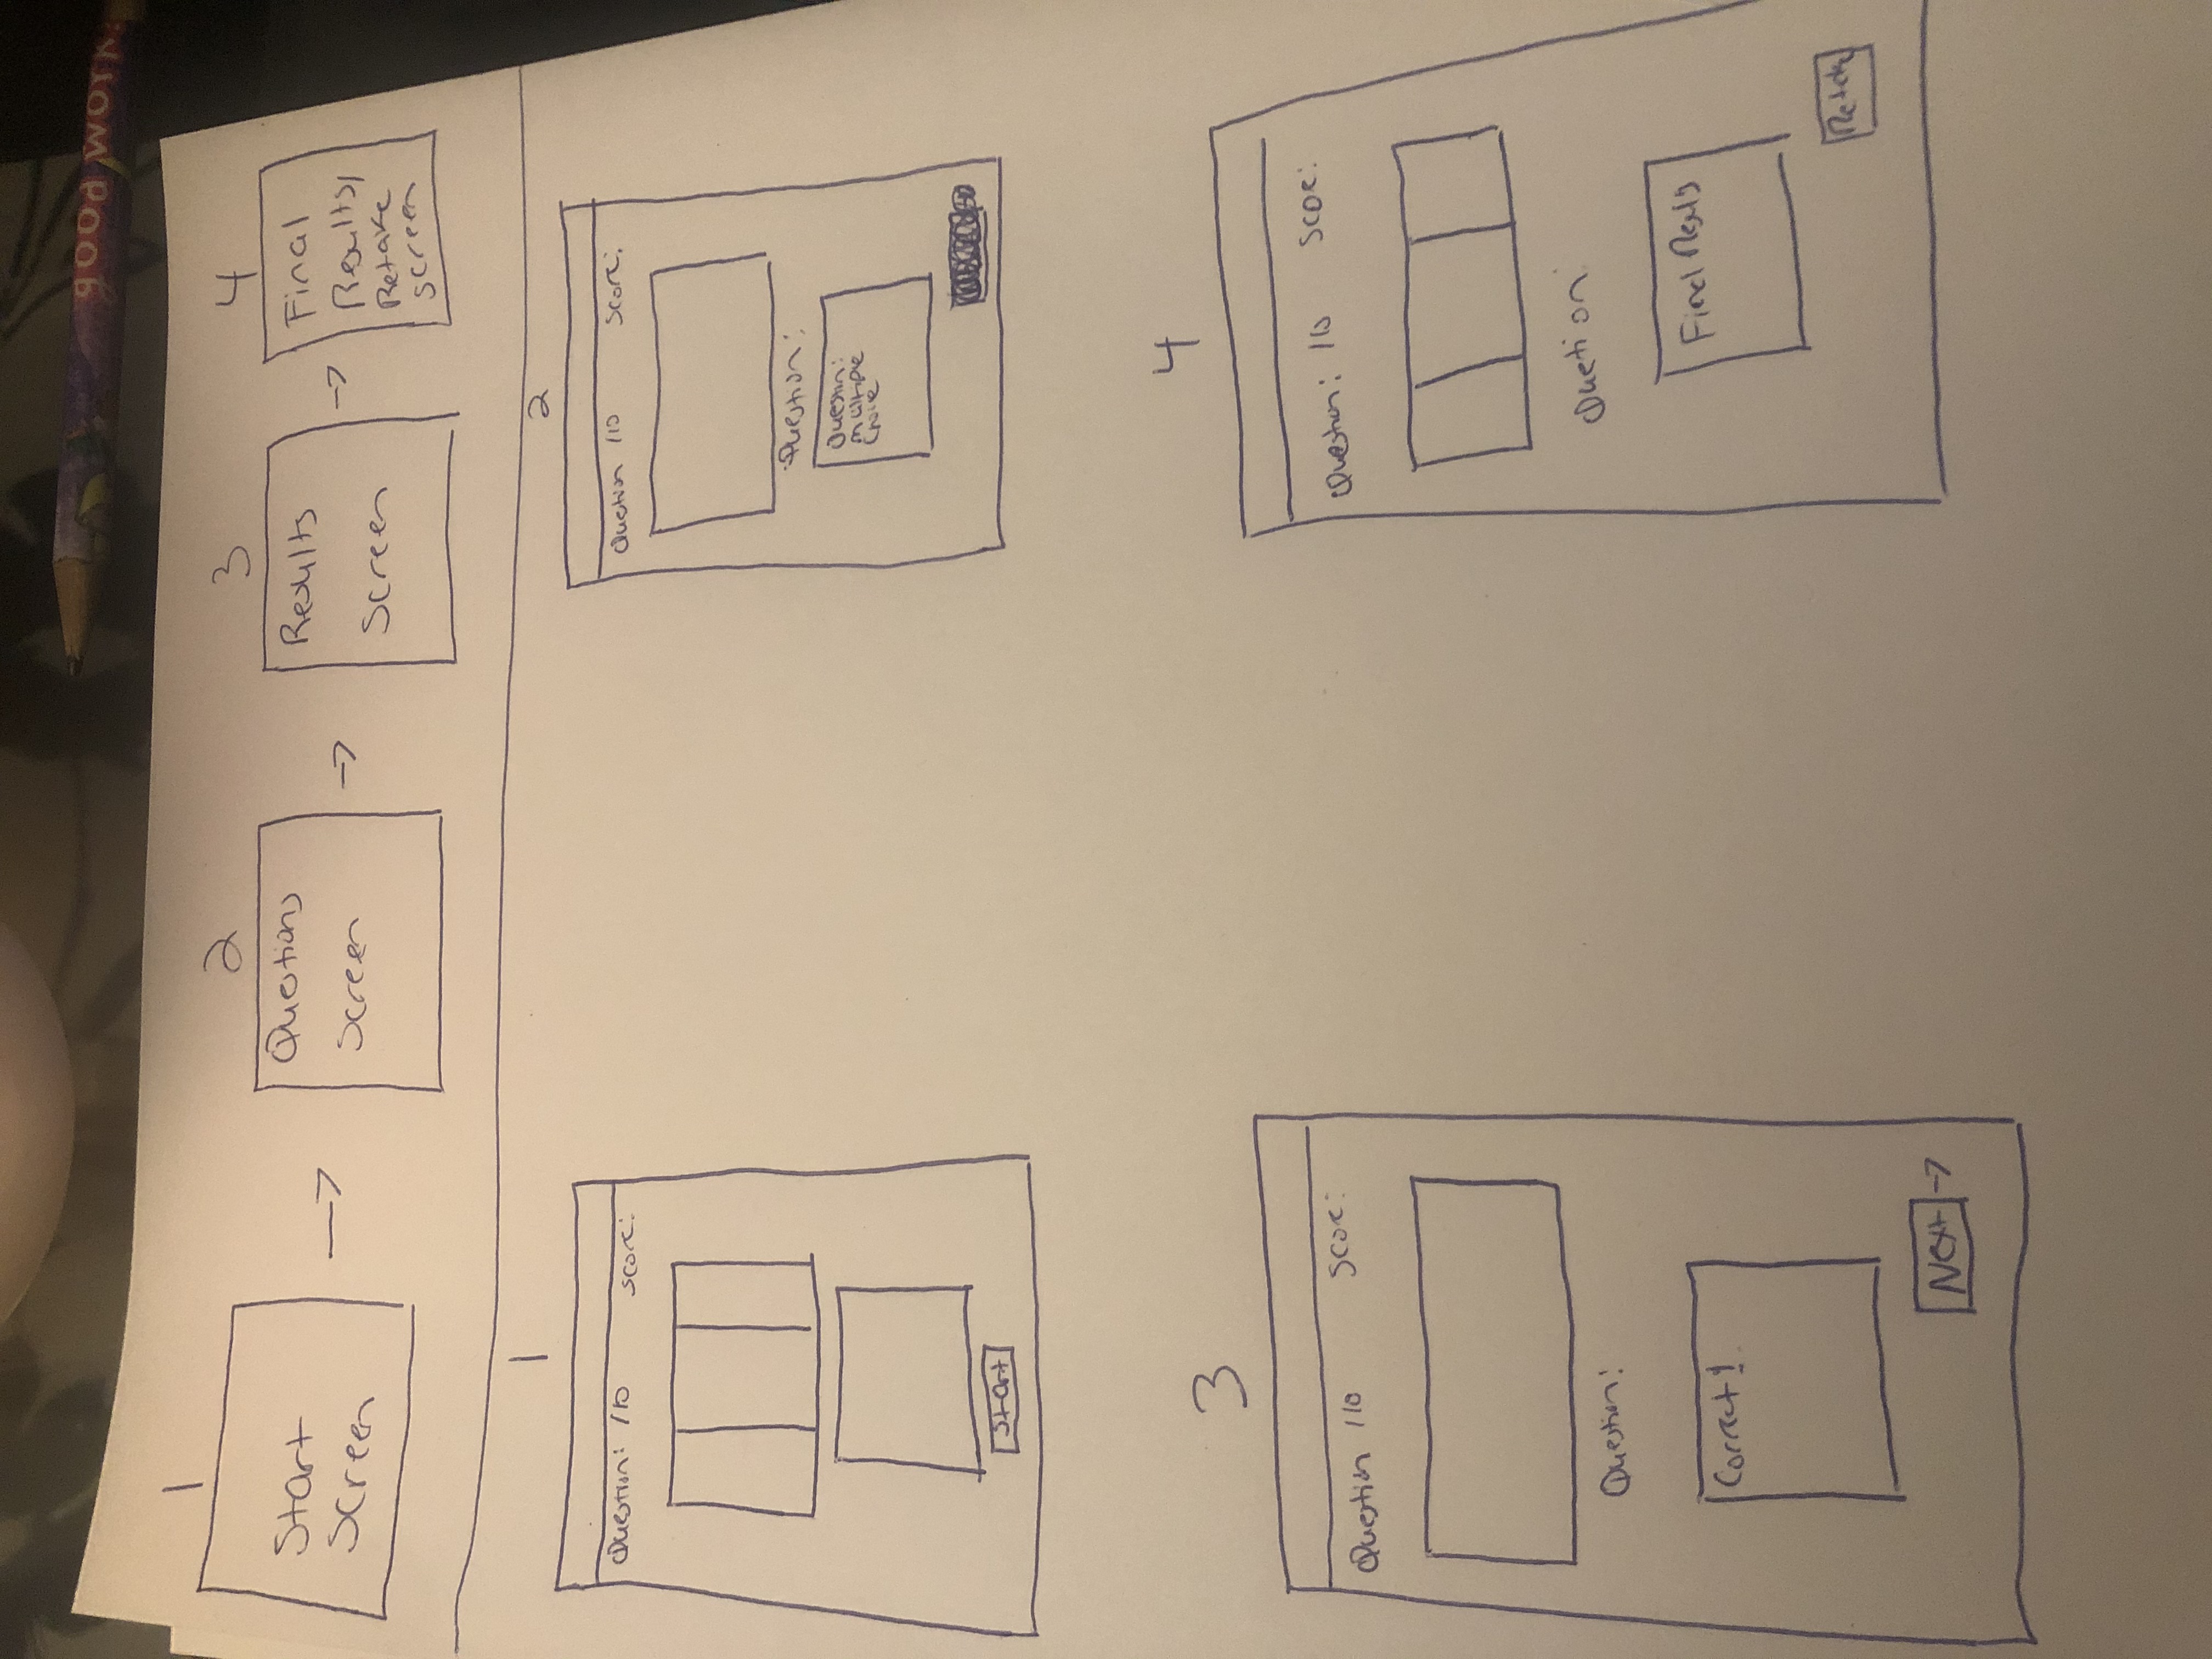 good work.
1
2
3
4
Start
Screen
→
Questions
Screen
→
Results
Screen
→
Final
Results/
Retake
screen
1
Question: /10 Score:
Start
2
Question /10 Score:
Question:
Question:
multiple
3
Question /10 Score:
Question:
Correct!
Next →
4
Question: /10 Score:
Quetion:
Final
Retake